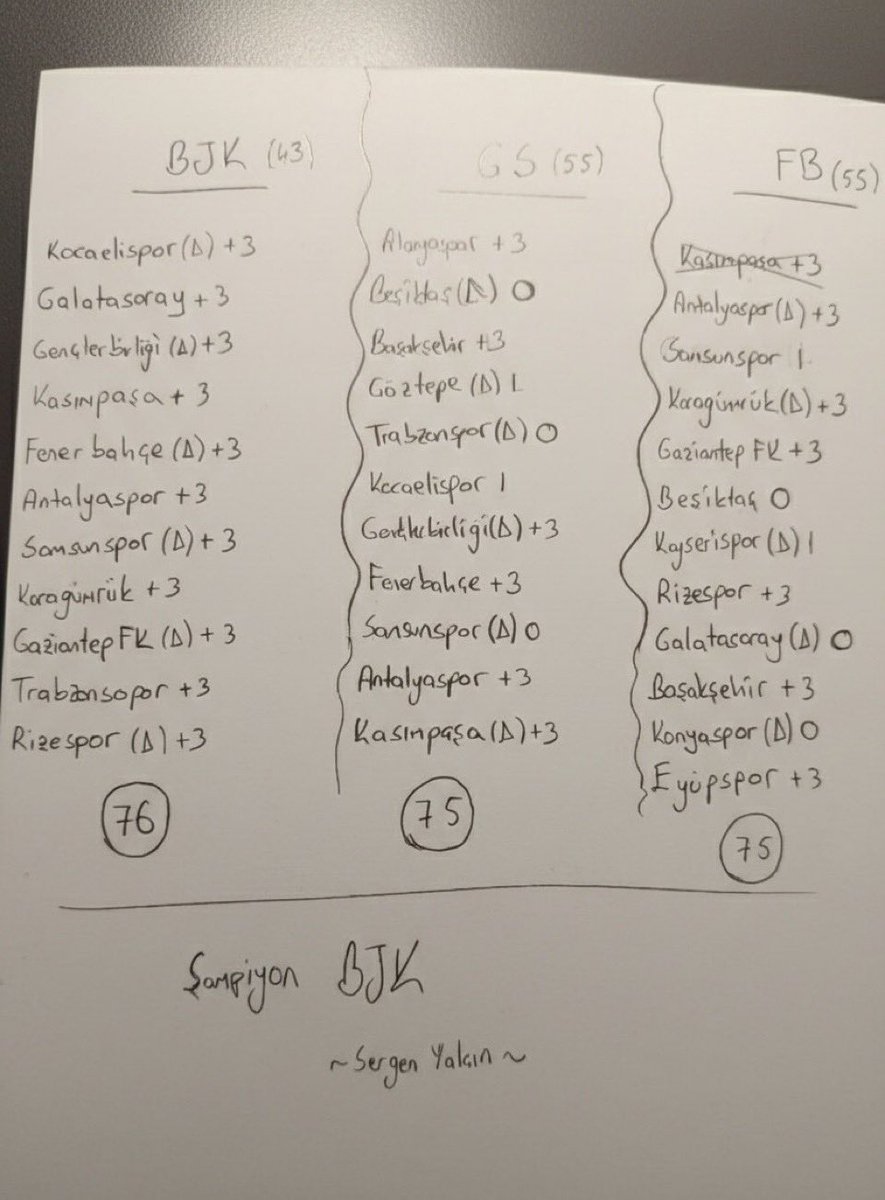 BJK (43)
Kocaelispor (Δ) +3
Galatasaray +3
Gençlerbirliği (Δ) +3
Kasımpaşa + 3
Fenerbahçe (Δ) +3
Antalyaspor +3
Samsunspor (Δ) + 3
Karagümrük +3
Gaziantep FK (Δ) + 3
Trabzonsopor +3
Rizespor (Δ) +3
76
GS (55)
Alanyaspor +3
Beşiktaş (Δ) 0
Başakşehir +3
Göztepe (Δ) 1
Trabzonspor (Δ) 0
Kocaelispor 1
Gençlerbirliği (Δ) +3
Fenerbahçe +3
Samsunspor (Δ) 0
Antalyaspor +3
Kasımpaşa (Δ) +3
75
FB (55)
Kasımpaşa +3
Antalyaspor (Δ) +3
Samsunspor 1
Karagümrük (Δ) +3
Gaziantep FK +3
Beşiktaş 0
Kayserispor (Δ) 1
Rizespor +3
Galatasaray (Δ) 0
Başakşehir +3
Konyaspor (Δ) 0
Eyüpspor +3
75
Şampiyon BJK
~Sergen Yalçın~